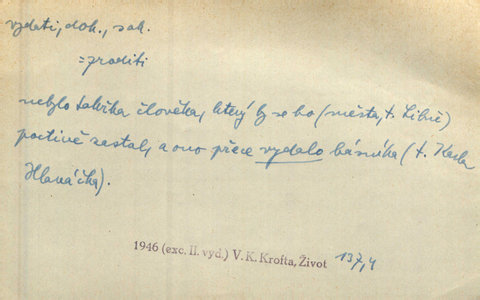 vydati, dok., sak.
= zraditi
nebylo takřka člověka, který by se ho (města, t. Libně)
poctivě zastal, a ono přece vydalo básníka (t. Karla
Hlaváčka).
1946 (exc. II. vyd.) V. K. Krofta, Život 137,4